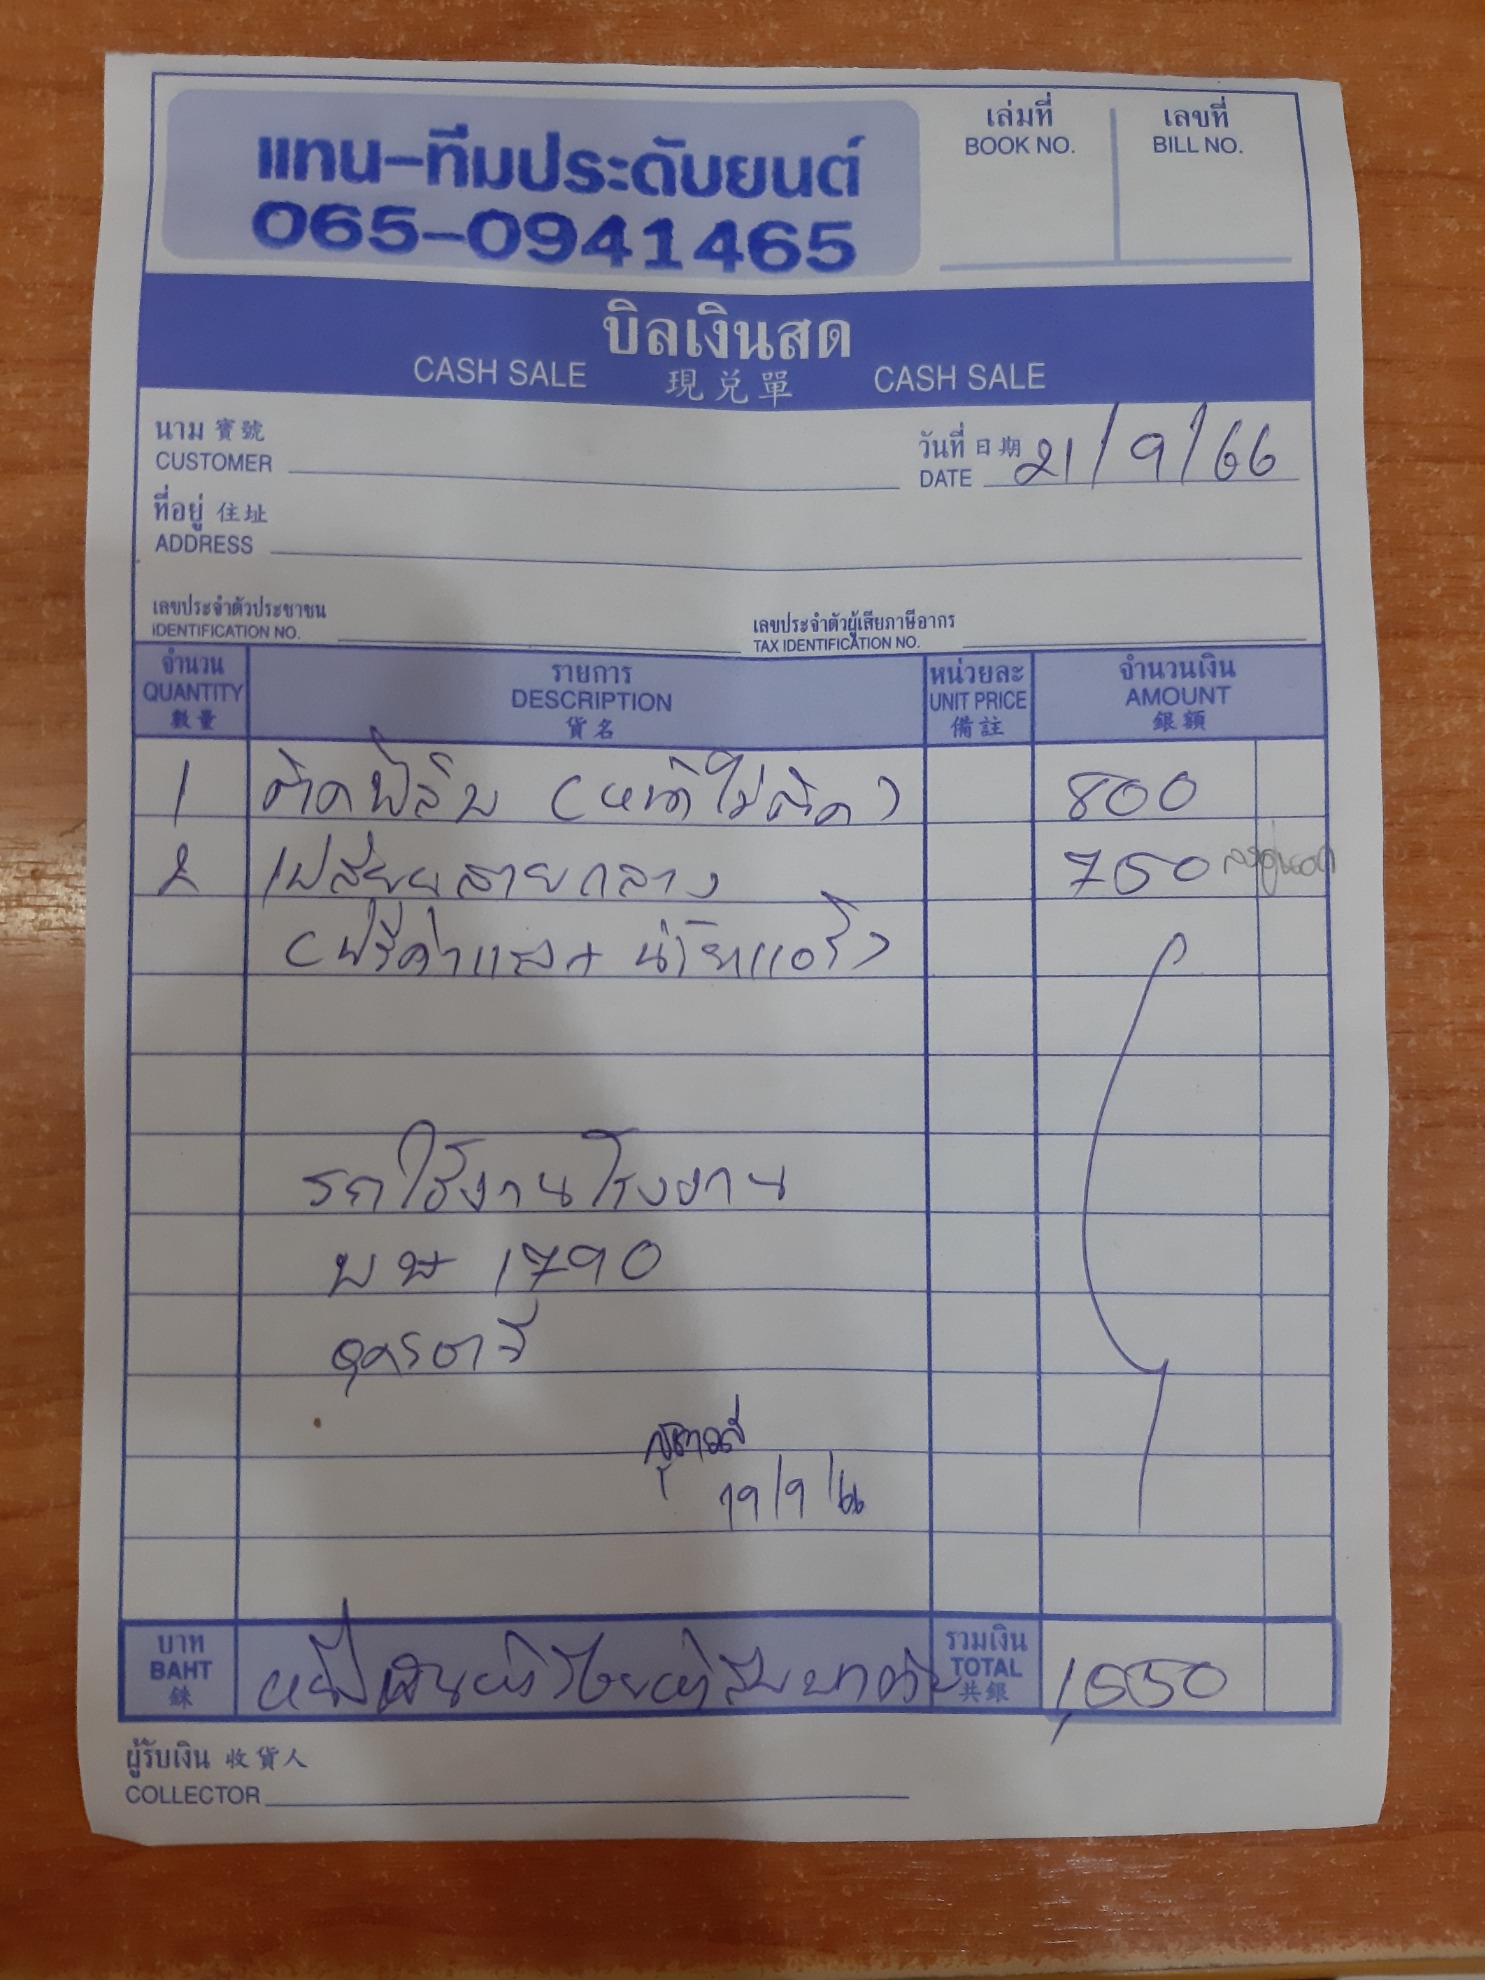 แทน-ทีมประดับยนต์
065-0941465
เล่มที่
BOOK NO.
เลขที่
BILL NO.
บิลเงินสด
CASH SALE 現兌單 CASH SALE
นาม 寶號
CUSTOMER
วันที่ 日期
DATE 21/9/66
ที่อยู่ 住址
ADDRESS
เลขประจำตัวประชาชน
IDENTIFICATION NO.
เลขประจำตัวผู้เสียภาษีอากร
TAX IDENTIFICATION NO.
จำนวน
QUANTITY
數量
รายการ
DESCRIPTION
貨名
หน่วยละ
UNIT PRICE
備註
จำนวนเงิน
AMOUNT
銀額
1 ติดฟิล์ม (หน้าไม่ติด) 800
2 เปลี่ยนสายกลาง 750
(ฟรีค่าแรง+
รถใช้งานโรงงาน
บษ 1790
อุดรธานี
19/9/66
บาท
BAHT
銖
หนึ่งพันห้าร้อยห้าสิบบาทถ้วน
รวมเงิน
TOTAL
共銀
1,550
ผู้รับเงิน 收貨人
COLLECTOR